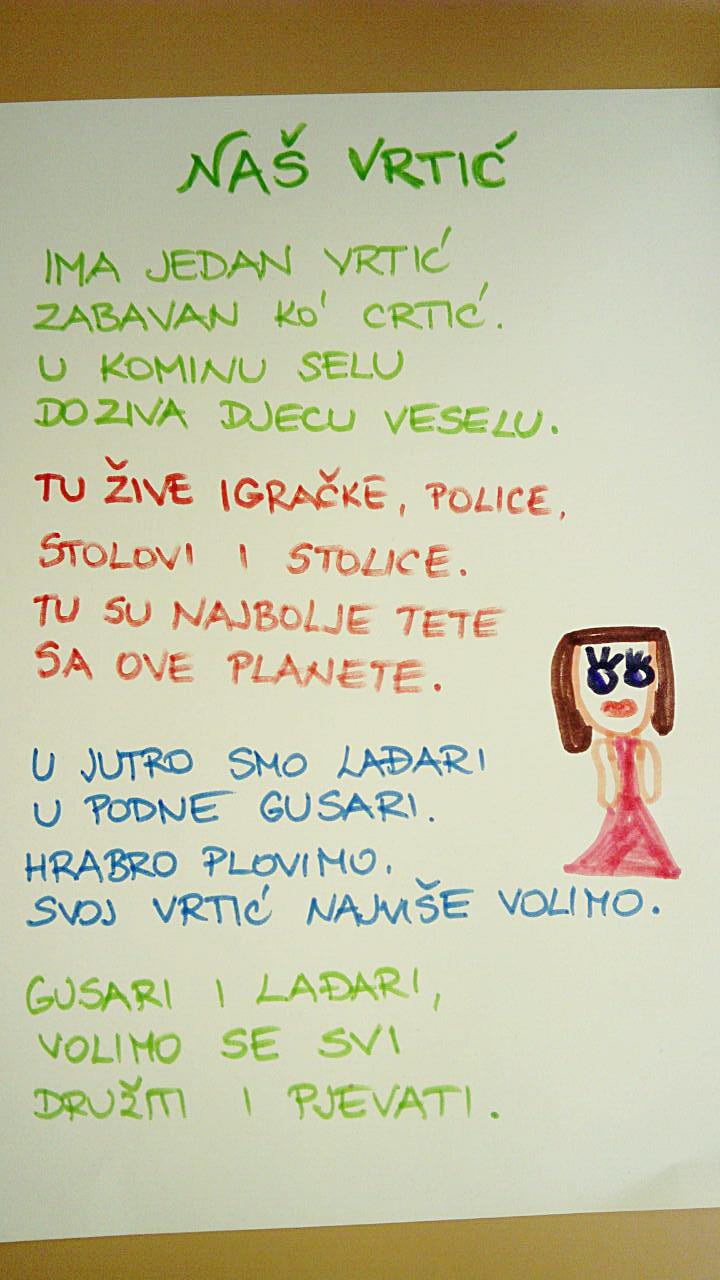 NAŠ VRTIĆ
IMA JEDAN VRTIĆ
ZABAVAN KO' CRTIĆ.
U KOMINU SELU
DOZIVA DJECU VESELU.
TU ŽIVE IGRAČKE, POLICE,
STOLOVI I STOLICE.
TU SU NAJBOLJE TETE
SA OVE PLANETE.
U JUTRO SMO LAĐARI
U PODNE GUSARI.
HRABRO PLOVIMO.
SVOJ VRTIĆ NAJVIŠE VOLIMO.
GUSARI I LAĐARI,
VOLIMO SE SVI
DRUŽITI I PJEVATI.